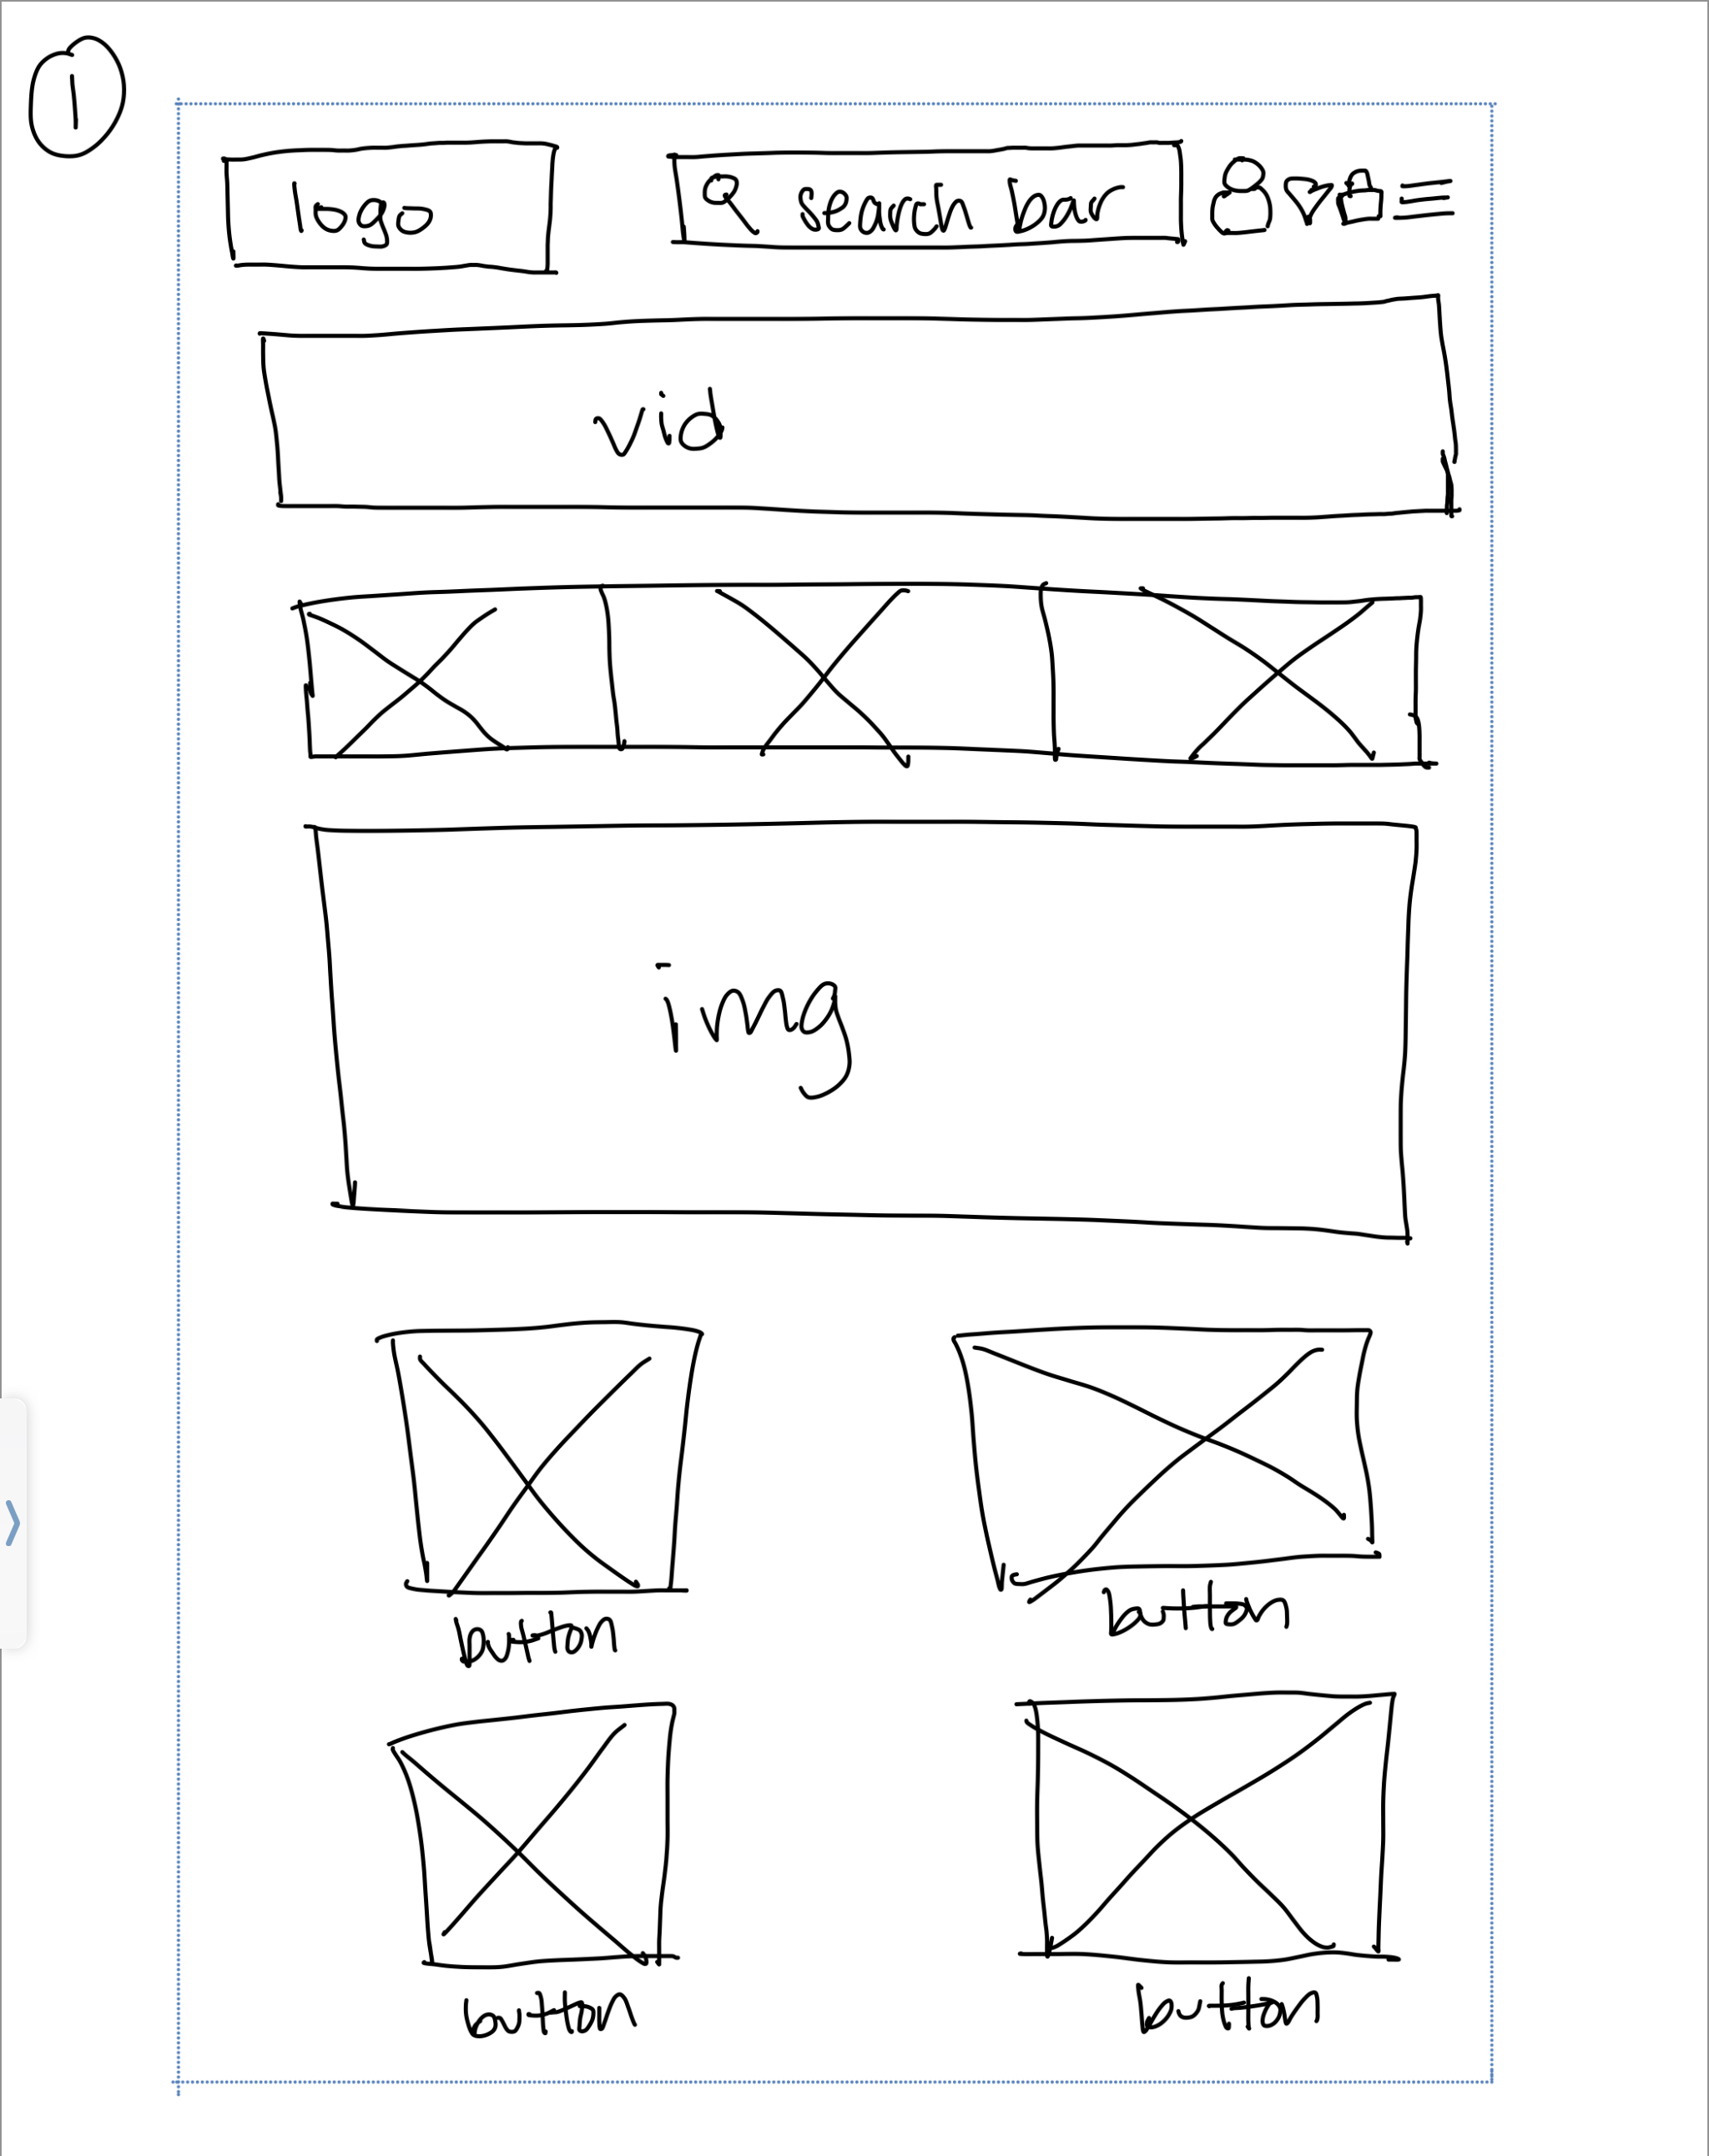 1
logo
search bar
vid
img
button button
button button